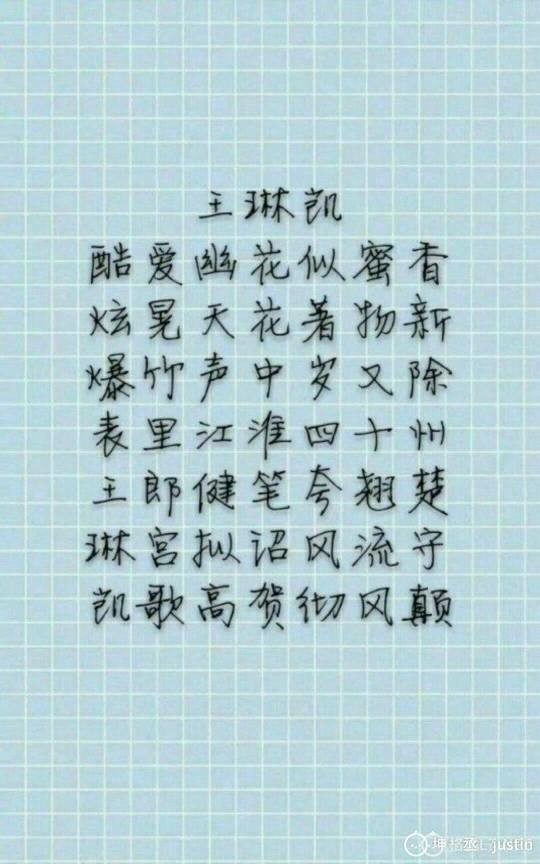 王琳凯
酷爱幽花似蜜香
炫晃天花著物新
爆竹声中岁又除
表里江淮四十州
王郎健笔夸翘楚
琳宫拟诏风流守
凯歌高贺彻风颠
坤 丞 justin